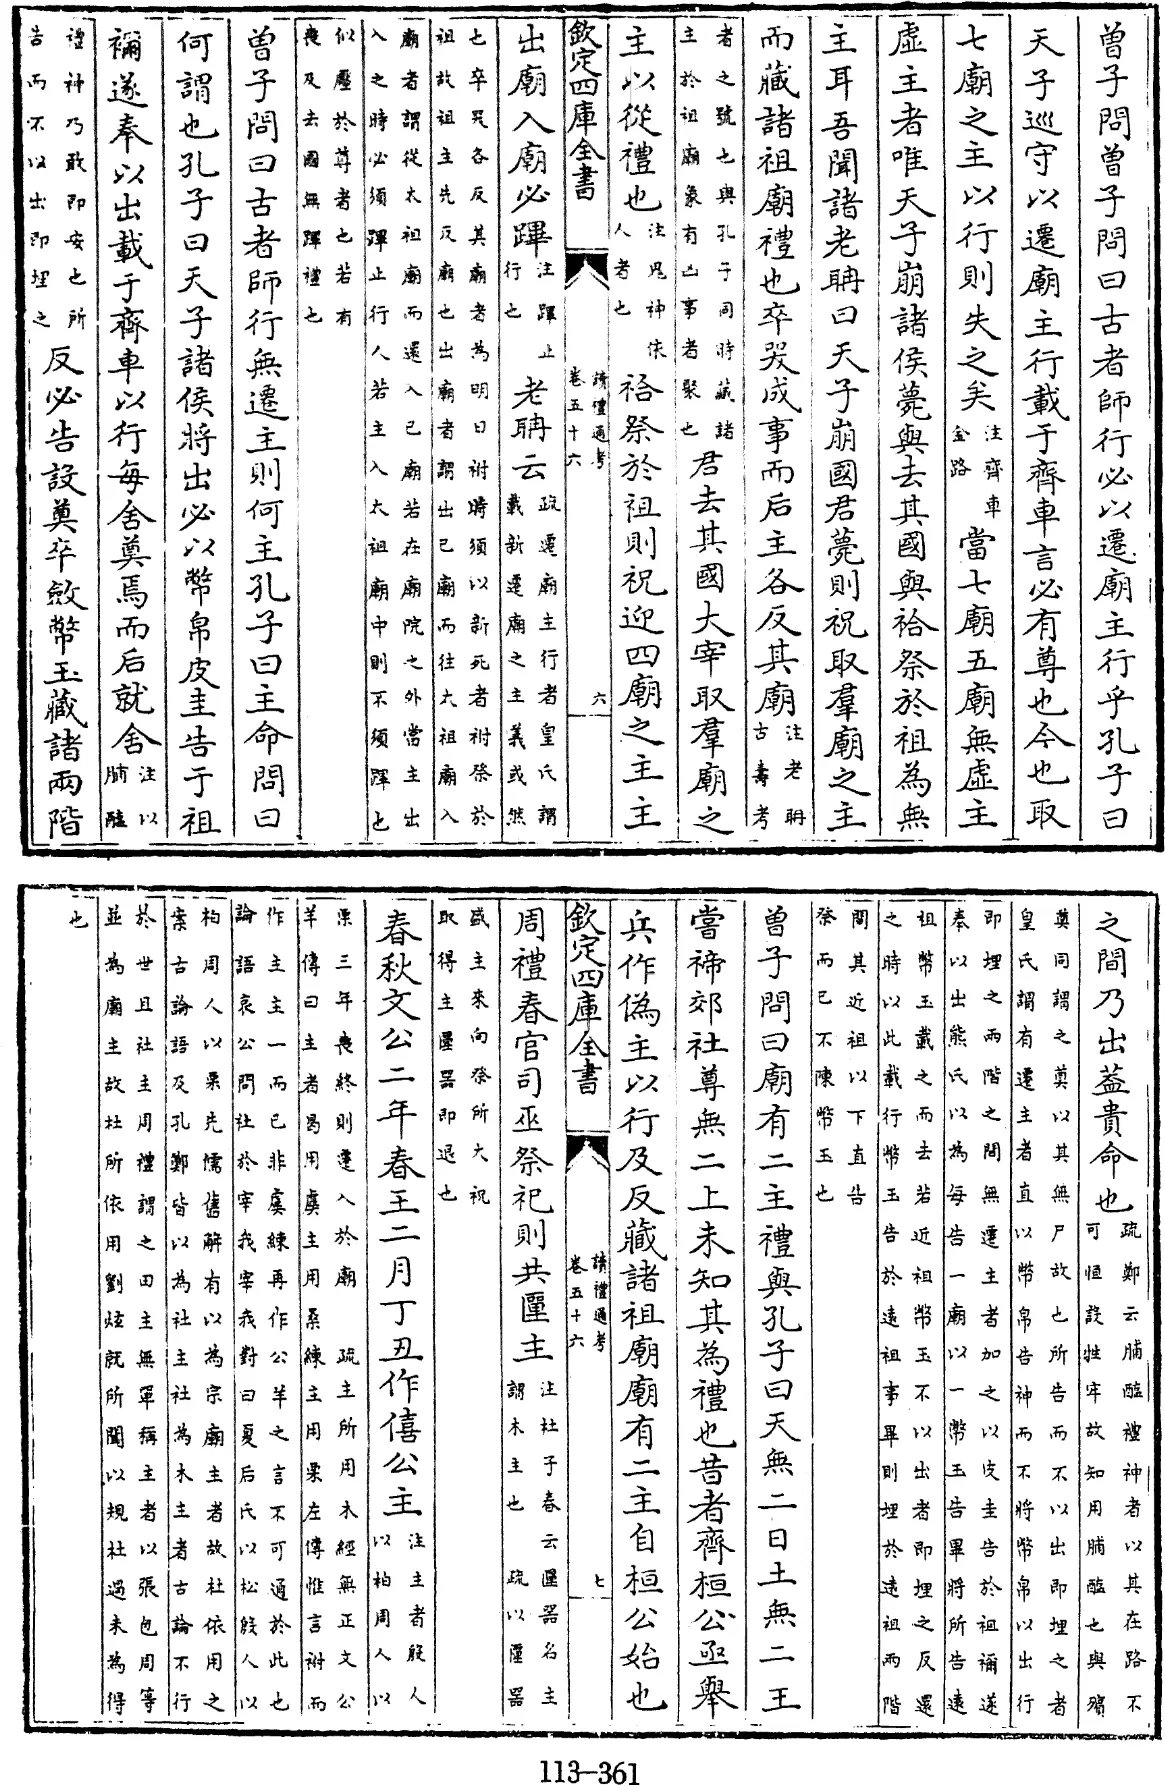 曾子問曾子問曰古者師行必以遷廟主行乎孔子曰
天子巡守以遷廟主行載于齊車言必有尊也今也取
七廟之主以行則失之矣注齊車金路當七廟五廟無虛主
虛主者唯天子崩諸侯薨與去其國與祫祭於祖為無
主耳吾聞諸老聃曰天子崩國君薨則祝取羣廟之主
而藏諸祖廟禮也卒哭成事而后主各反其廟注老聃古壽考
者之號也與孔子同時藏諸主於祖廟象有凶事者聚也君去其國大宰取羣廟之
主以從禮也注鬼神依人者也祫祭於祖則祝迎四廟之主主
欽定四庫全書 讀禮通考卷五十六 六
出廟入廟必蹕注蹕止行也老聃云疏遷廟主行者皇氏謂載新遷廟之主義或然
也卒哭各反其廟者為明日祔時須以新死者祔祭於
祖故祖主先反廟也出廟者謂出己廟而往太祖廟入
廟者謂從太祖廟而還入己廟若在廟院之外當主出
入之時必須蹕止行人若主入太祖廟中則不須蹕也
似壓於尊者也若有
喪及去國無蹕禮也
曾子問曰古者師行無遷主則何主孔子曰主命問曰
何謂也孔子曰天子諸侯將出必以幣帛皮圭告于祖
禰遂奉以出載于齊車以行每舍奠焉而后就舍注以脯醢
禮神乃敢即安也所告而不以出即埋之反必告設奠卒斂幣玉藏諸兩階
之間乃出葢貴命也疏鄭云脯醢禮神者以其在路不可恒設牲牢故知用脯醢也與殯
奠同謂之奠以其無尸故也所告而不以出即埋之者
皇氏謂有遷主者直以幣帛告神而不將幣帛以出行
即埋之兩階之間無遷主者加之以皮圭告於祖禰遂
奉以出熊氏以為每告一廟以一幣玉告畢將所告遠
祖幣玉載之而去若近祖幣玉不以出者即埋之反還
之時以此載行幣玉告於遠祖事畢則埋於遠祖兩階
間其近祖以下直告
祭而已不陳幣玉也
曾子問曰廟有二主禮與孔子曰天無二日土無二王
嘗禘郊社尊無二上未知其為禮也昔者齊桓公亟舉
兵作偽主以行及反藏諸祖廟廟有二主自桓公始也
欽定四庫全書 讀禮通考卷五十六 七
周禮春官司巫祭祀則共匰主注杜子春云匰器名主謂木主也 疏以匰器
盛主來向祭所大祝
取得主匰器即退也
春秋文公二年春王二月丁丑作僖公主注主者殷人以柏周人以
栗三年喪終則遷入於廟 疏主所用木經無正文公
羊傳曰主者曷用虞主用桑練主用栗左傳惟言祔而
作主主一而已非虞練再作公羊之言不可通於此也
論語哀公問社於宰我宰我對曰夏后氏以松殷人以
柏周人以栗先儒舊解有以為宗廟主者故社依用之
案古論語及孔鄭皆以為社主社為木主者古論不行
於世且社主周禮謂之田主無單稱主者以張包周等
並為廟主故杜所依用劉炫就所聞以規杜過未為得
也
113-361